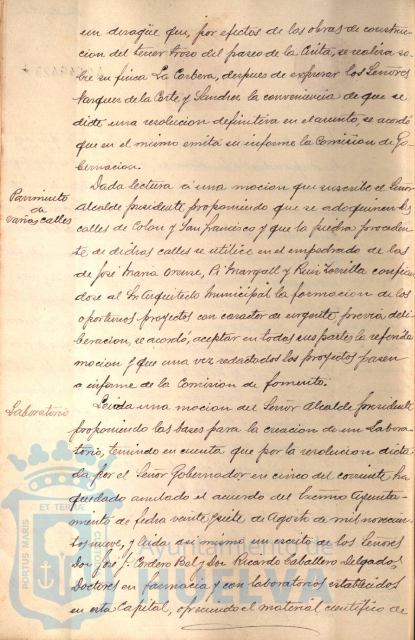 un desagüe que, por efectos de las obras de construc-
cion del tercer trozo del paseo de la Cinta, se realiza so-
bre su finca La Corbera, despues de expresar los Señores
Marquez de la Corte y Sanchez la conveniencia de que se
dicte una resolucion definitiva en el asunto, se acordó
que en el mismo emita su informe la Comision de Go-
bernacion.
Pavimento
de
varias calles
Dada lectura á una mocion que suscribe el Señor
Alcalde presidente proponiendo que se adoquinen las
calles de Colon y San Francisco y que la piedra proceden-
te de dichas calles se utilice en el empedrado de las
de José Maria Orense, Pi Margall y Ruiz Zorrilla confian-
dose al Sr. Arquitecto Municipal la formacion de los
oportunos proyectos con caracter de urgente, previa deli-
beracion, se acordó, aceptar en todas sus partes la referida
mocion y que una vez redactados los proyectos pasen
a informe de la Comision de fomento.
Laboratorio
Leida una mocion del Señor Alcalde presidente
proponiendo las bases para la creacion de un Labora-
torio, teniendo en cuenta que por la resolucion dicta-
da por el Señor Gobernador en cinco del corriente ha
quedado anulado el acuerdo del Excmo Ayunta-
miento de fecha veinte y siete de Agosto de mil novecien-
tos nueve, y leida asi mismo un escrito de los Señores
Don José J. Cordero Bel y Don Ricardo Caballero Delgado,
Doctores en farmacia y con laboratorios establecidos
en esta Capital, ofreciendo el material cientifico de
PORTUS MARIS ET TERRAE
Ayuntamiento de
HUELVA